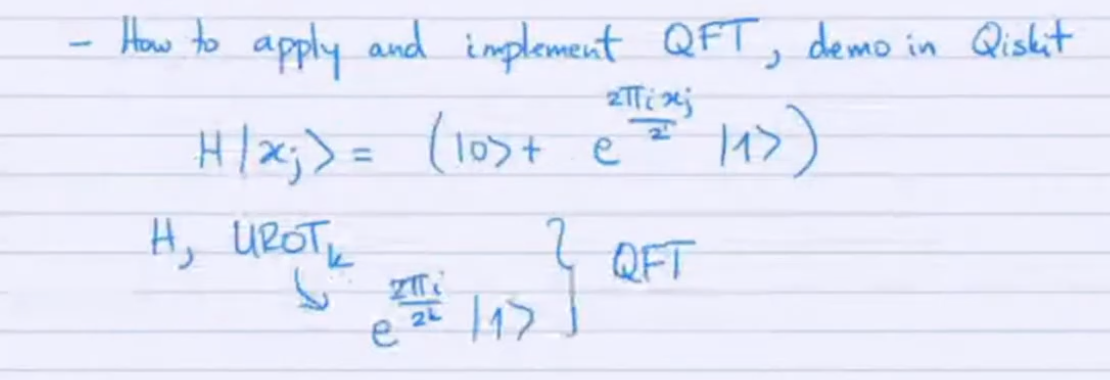 - How to apply and implement QFT, demo in Qiskit
H|xj> = (|0>+ e^(2πixj/2^1) |1>)
H, UROTk } QFT
↳ e^(2πi/2^k) |1>